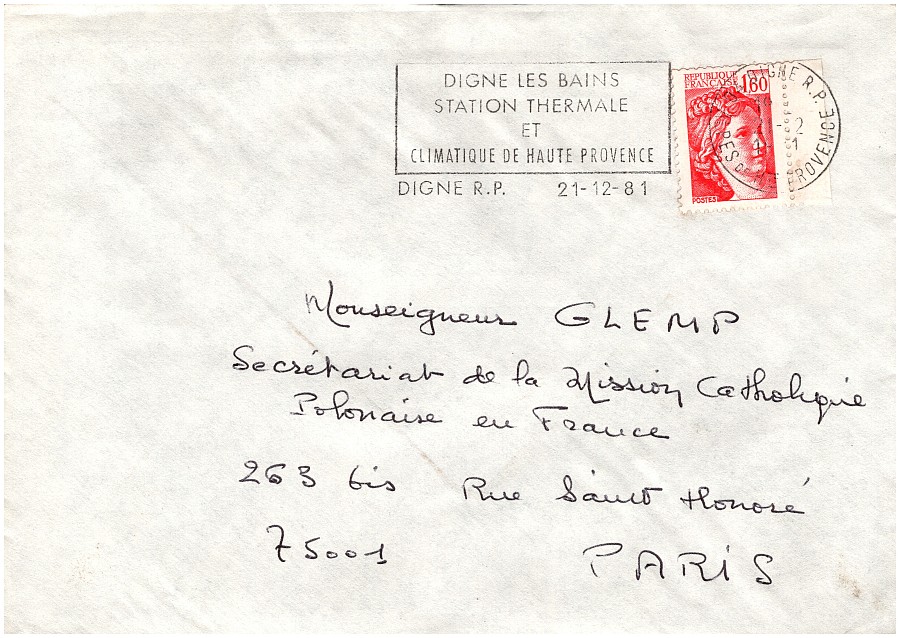 DIGNE LES BAINS
STATION THERMALE
ET
CLIMATIQUE DE HAUTE PROVENCE
DIGNE R.P. 21-12-81
REPUBLIQUE
FRANCAISE 1,60
POSTES
DIGNE R.P.
PROVENCE
Monseigneur GLEMP
Secrétariat de la Mission Catholique
Polonaise en France
263 bis Rue Saint Honoré
75001 PARIS